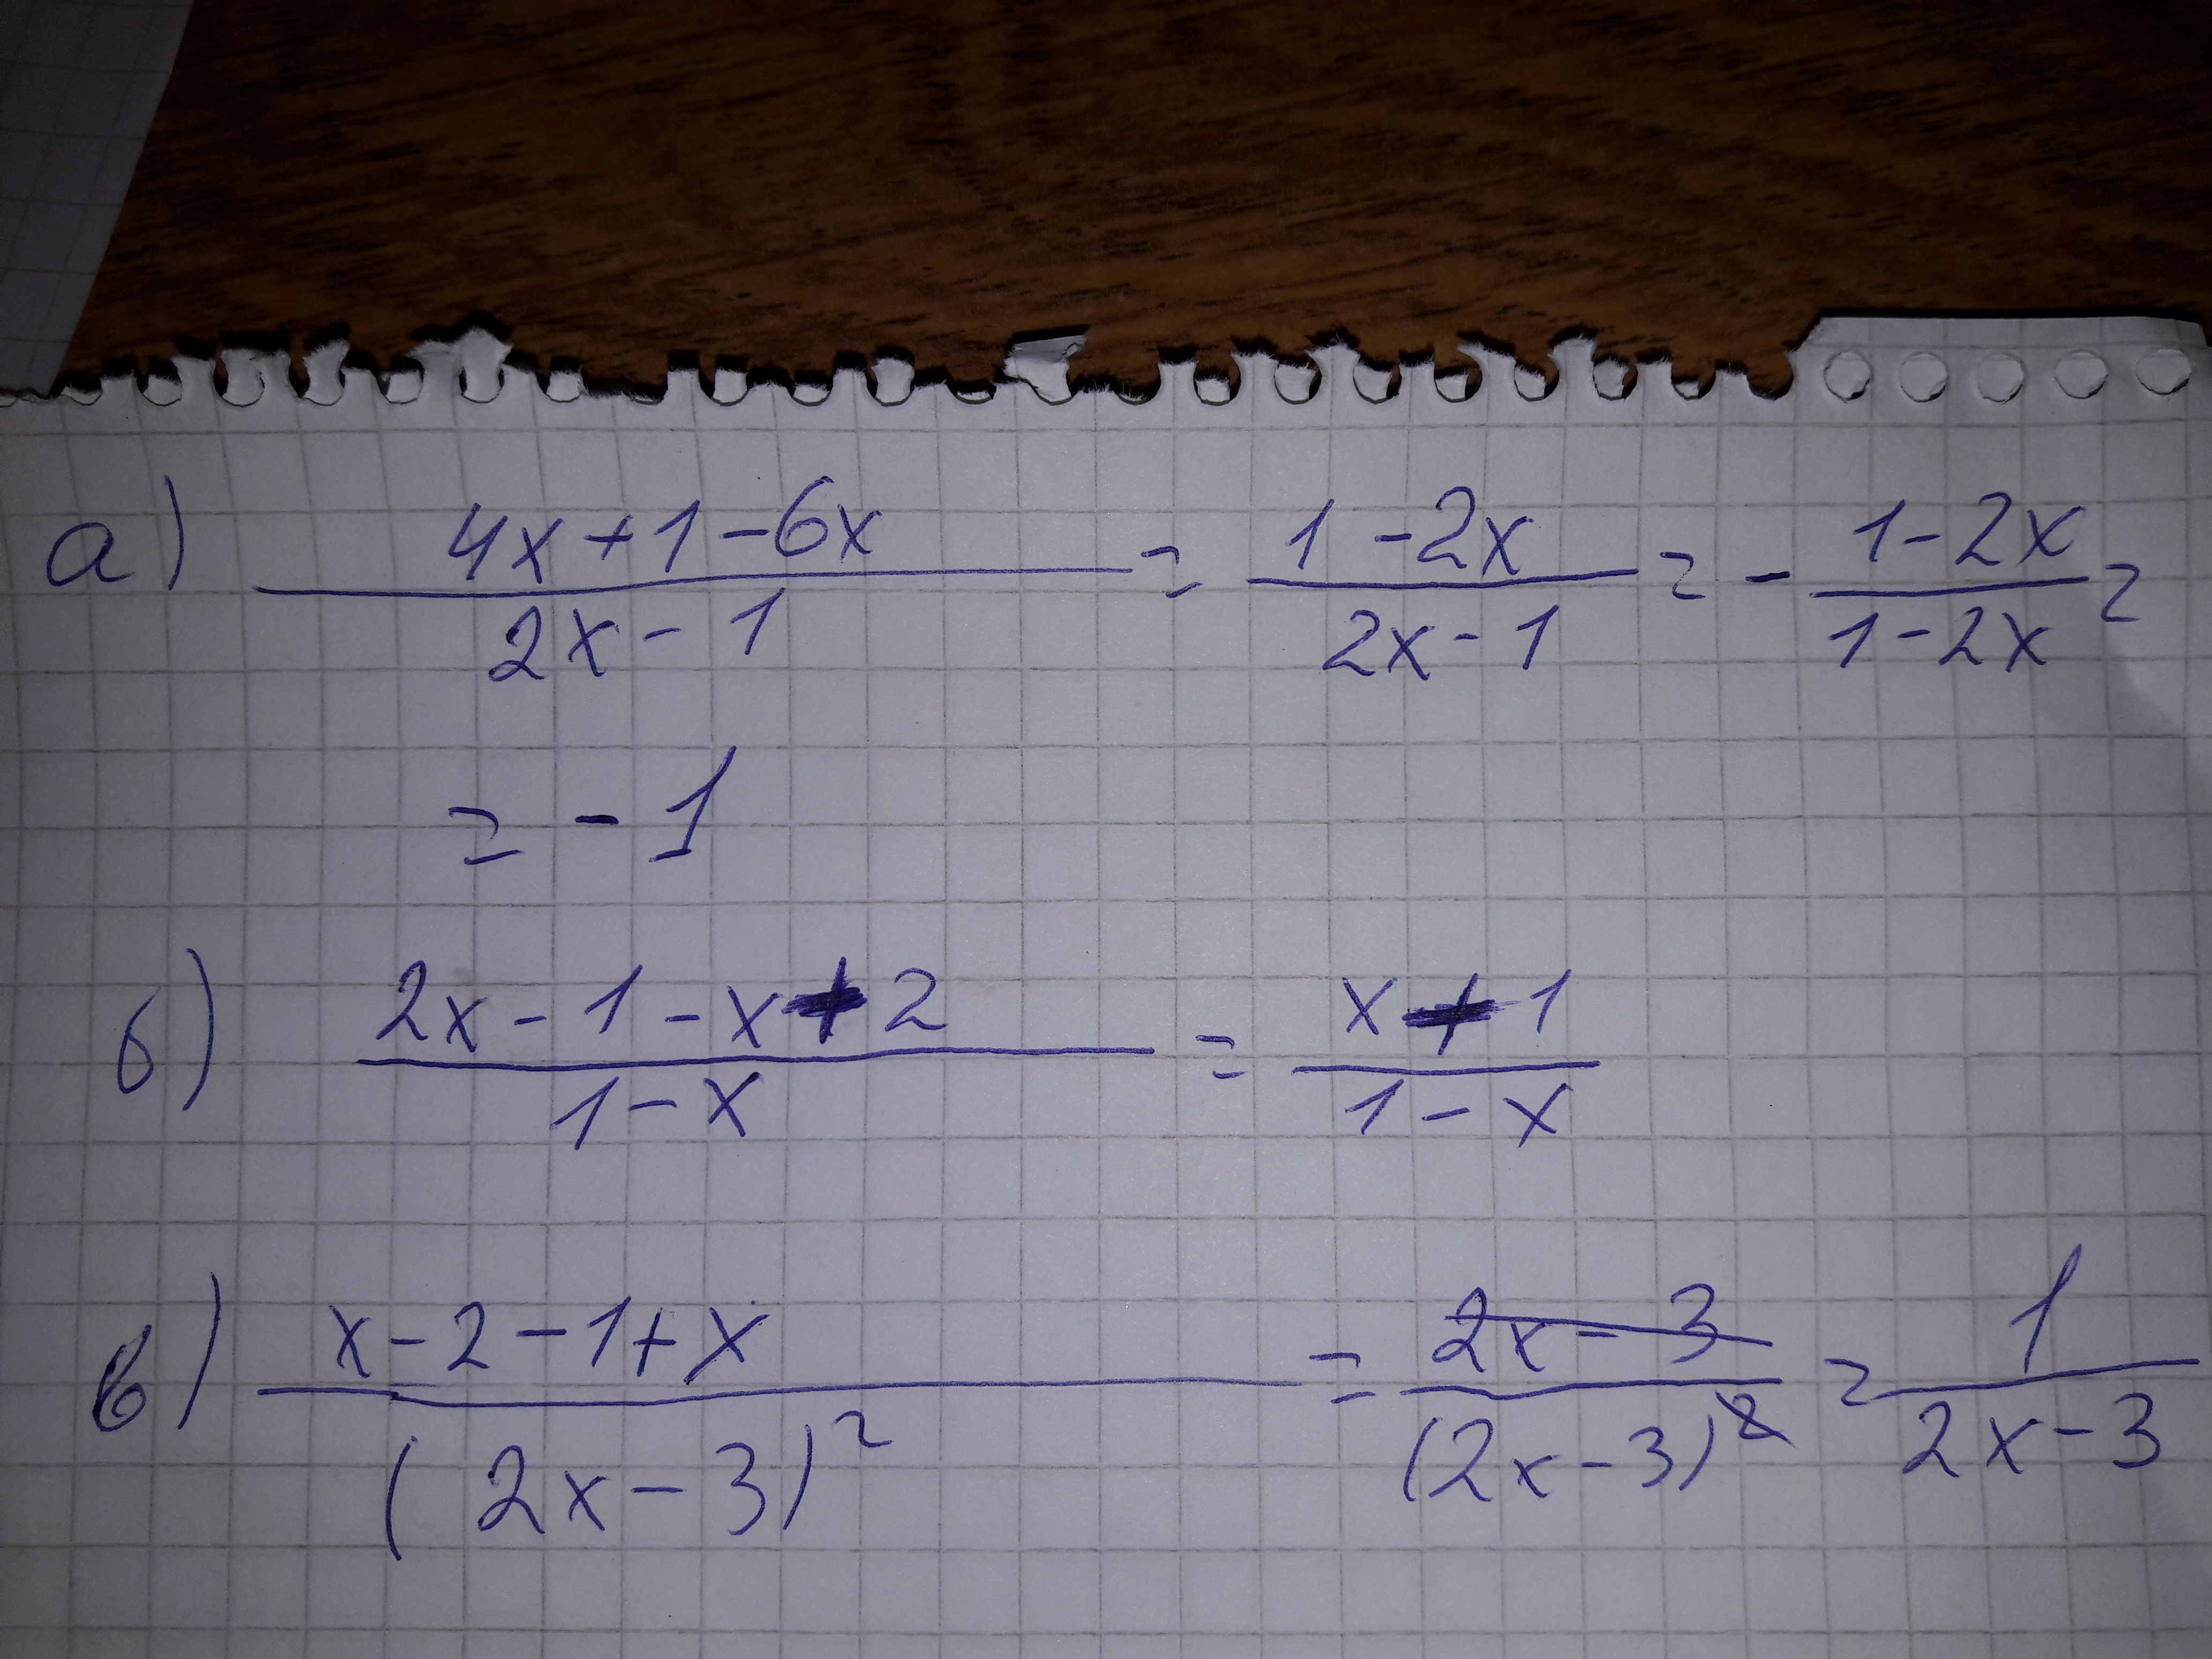 а) (4x+1-6x)/(2x-1) = (1-2x)/(2x-1) = -(1-2x)/(1-2x) =
= -1
б) (2x-1-x+2)/(1-x) = (x+1)/(1-x)
в) (x-2-1+x)/(2x-3)² = (2x-3)/(2x-3)² = 1/(2x-3)